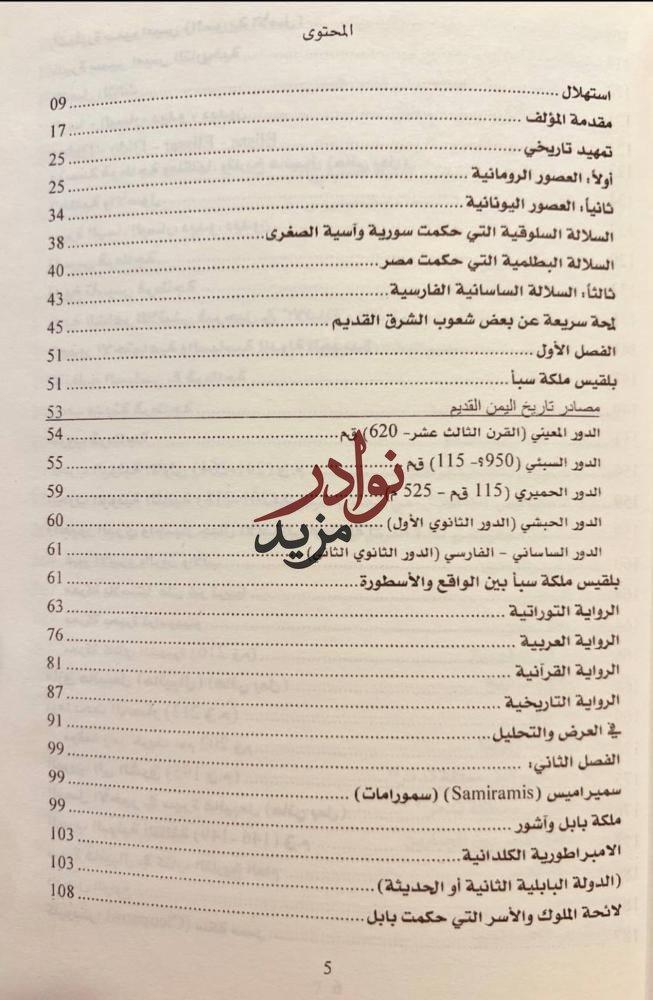 المحتوى
استهلال ........ 09
مقدمة المؤلف ........ 17
تمهيد تاريخي ........ 25
أولاً: العصور الرومانية ........ 25
ثانياً: العصور اليونانية ........ 34
السلالة السلوقية التي حكمت سورية وآسية الصغرى ........ 38
السلالة البطلمية التي حكمت مصر ........ 40
ثالثاً: السلالة الساسانية الفارسية ........ 43
لمحة سريعة عن بعض شعوب الشرق القديم ........ 45
الفصل الأول ........ 51
بلقيس ملكة سبأ ........ 51
مصادر تاريخ اليمن القديم 53
الدور المعيني (القرن الثالث عشر- 620) قم ........ 54
الدور السبئي (950؟- 115) قم ........ 55
الدور الحميري (115 قم - 525 م) ........ 59
الدور الحبشي (الدور الثانوي الأول) ........ 60
الدور الساساني - الفارسي (الدور الثانوي الثاني) ........ 61
بلقيس ملكة سبأ بين الواقع والأسطورة ........ 61
الرواية التوراتية ........ 63
الرواية العربية ........ 76
الرواية القرآنية ........ 81
الرواية التاريخية ........ 87
في العرض والتحليل ........ 91
الفصل الثاني: ........ 99
سميراميس (Samiramis) (سمورامات) ........ 99
ملكة بابل وآشور ........ 99
الامبراطورية الكلدانية ........ 103
(الدولة البابلية الثانية أو الحديثة) ........ 103
لائحة الملوك والأسر التي حكمت بابل ........ 108
5
نوادر
مزيد